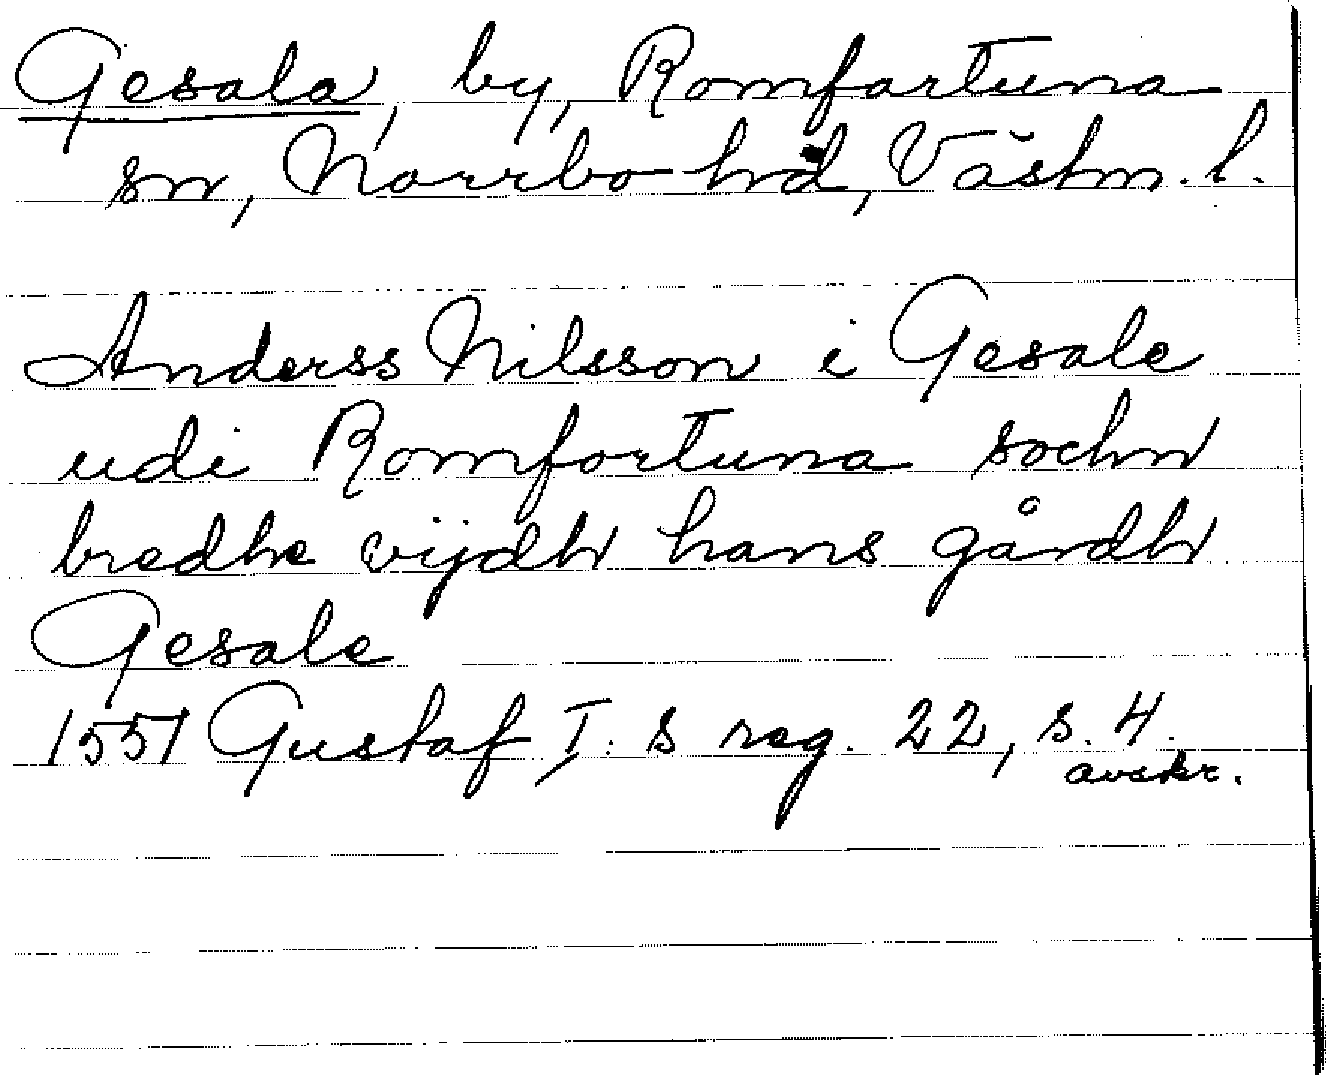 Gesala, by, Romfartuna
sn, Norrbo hd, Västm. l.
Anderss Nilsson i Gesale
udi Romfortuna sochn
bredhe vijdh hans gårdh
Gesale
1551 Gustaf I:s reg. 22, s. 4.
avskr.